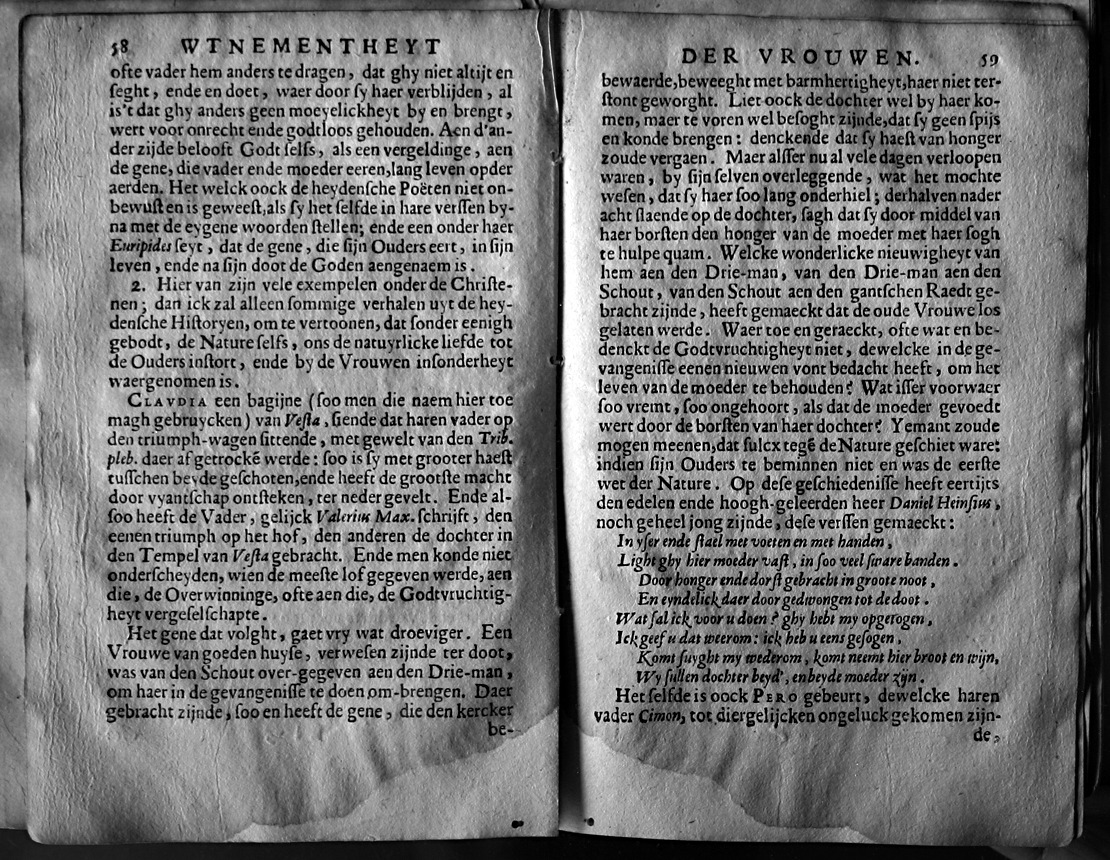 58 WTNEMENTHEYT
ofte vader hem anders te dragen, dat ghy niet altijt en
seght, ende en doet, waer door sy haer verblijden, al
is't dat ghy anders geen moeyelickheyt by en brengt,
wert voor onrecht ende godtloos gehouden. Aen d'an-
der zijde belooft Godt selfs, als een vergeldinge, aen
de gene, die vader ende moeder eeren, lang leven op der
aerden. Het welck oock de heydensche Poëten niet on-
bewust en is geweest, als sy het selfde in hare verssen by-
na met de eygene woorden stellen; ende een onder haer
Euripides seyt, dat de gene, die sijn Ouders eert, in sijn
leven, ende na sijn doot de Goden aengenaem is.
2. Hier van zijn vele exempelen onder de Christe-
nen; dan ick zal alleen sommige verhalen uyt de hey-
densche Historyen, om te vertoonen, dat sonder eenigh
gebodt, de Nature selfs, ons de natuyrlicke liefde tot
de Ouders instort, ende by de Vrouwen insonderheyt
waergenomen is.
CLAVDIA een bagijne (soo men die naem hier toe
magh gebruycken) van Vesta, siende dat haren vader op
den triumph-wagen sittende, met gewelt van den Trib.
pleb. daer af getrocké werde: soo is sy met grooter haest
tusschen beyde geschoten, ende heeft de grootste macht
door vyantschap ontsteken, ter neder gevelt. Ende al-
soo heeft de Vader, gelijck Valerius Max. schrijft, den
eenen triumph op het hof, den anderen de dochter in
den Tempel van Vesta gebracht. Ende men konde niet
onderscheyden, wien de meeste lof gegeven werde, aen
die, de Overwinninge, ofte aen die, de Godtvruchtig-
heyt vergeselschapte.
Het gene dat volght, gaet vry wat droeviger. Een
Vrouwe van goeden huyse, verwesen zijnde ter doot,
was van den Schout over-gegeven aen den Drie-man,
om haer in de gevangenisse te doen om-brengen. Daer
gebracht zijnde, soo en heeft de gene, die den kercker
be-
DER VROUWEN. 59
bewaerde, beweeght met barmhertigheyt, haer niet ter-
stont geworght. Liet oock de dochter wel by haer ko-
men, maer te voren wel besoght zijnde, dat sy geen spijs
en konde brengen: denckende dat sy haest van honger
zoude vergaen. Maer alsser nu al vele dagen verloopen
waren, by sijn selven overleggende, wat het mochte
wesen, dat sy haer soo lang onderhiel; derhalven nader
acht slaende op de dochter, sagh dat sy door middel van
haer borsten den honger van de moeder met haer sogh
te hulpe quam. Welcke wonderlicke nieuwigheyt van
hem aen den Drie-man, van den Drie-man aen den
Schout, van den Schout aen den gantschen Raedt ge-
bracht zijnde, heeft gemaeckt dat de oude Vrouwe los
gelaten werde. Waer toe en geraeckt, ofte wat en be-
denckt de Godtvruchtigheyt niet, dewelcke in de ge-
vangenisse eenen nieuwen vont bedacht heeft, om het
leven van de moeder te behouden? Wat isser voorwaer
soo vremt, soo ongehoort, als dat de moeder gevoedt
wert door de borsten van haer dochter? Yemant zoude
mogen meenen, dat sulcx tegē de Nature geschiet ware:
indien sijn Ouders te beminnen niet en was de eerste
wet der Nature. Op dese geschiedenisse heeft eertijts
den edelen ende hoogh-geleerden heer Daniel Heinsius,
noch geheel jong zijnde, dese verssen gemaeckt:
In yser ende stael met voeten en met handen,
Light ghy hier moeder vast, in soo veel sware banden.
Door honger ende dorst gebracht in groote noot,
En eyndelick daer door gedwongen tot de doot.
Wat sal ick voor u doen? ghy hebt my opgetogen,
Ick geef u dat weerom: ick heb u eens gesogen,
Komt suyght my wederom, komt neemt hier broot en wijn,
Wy sullen dochter beyd', en beyde moeder zijn.
Het selfde is oock PERO gebeurt, dewelcke haren
vader Cimon, tot diergelijcken ongeluck gekomen zijn-
de,